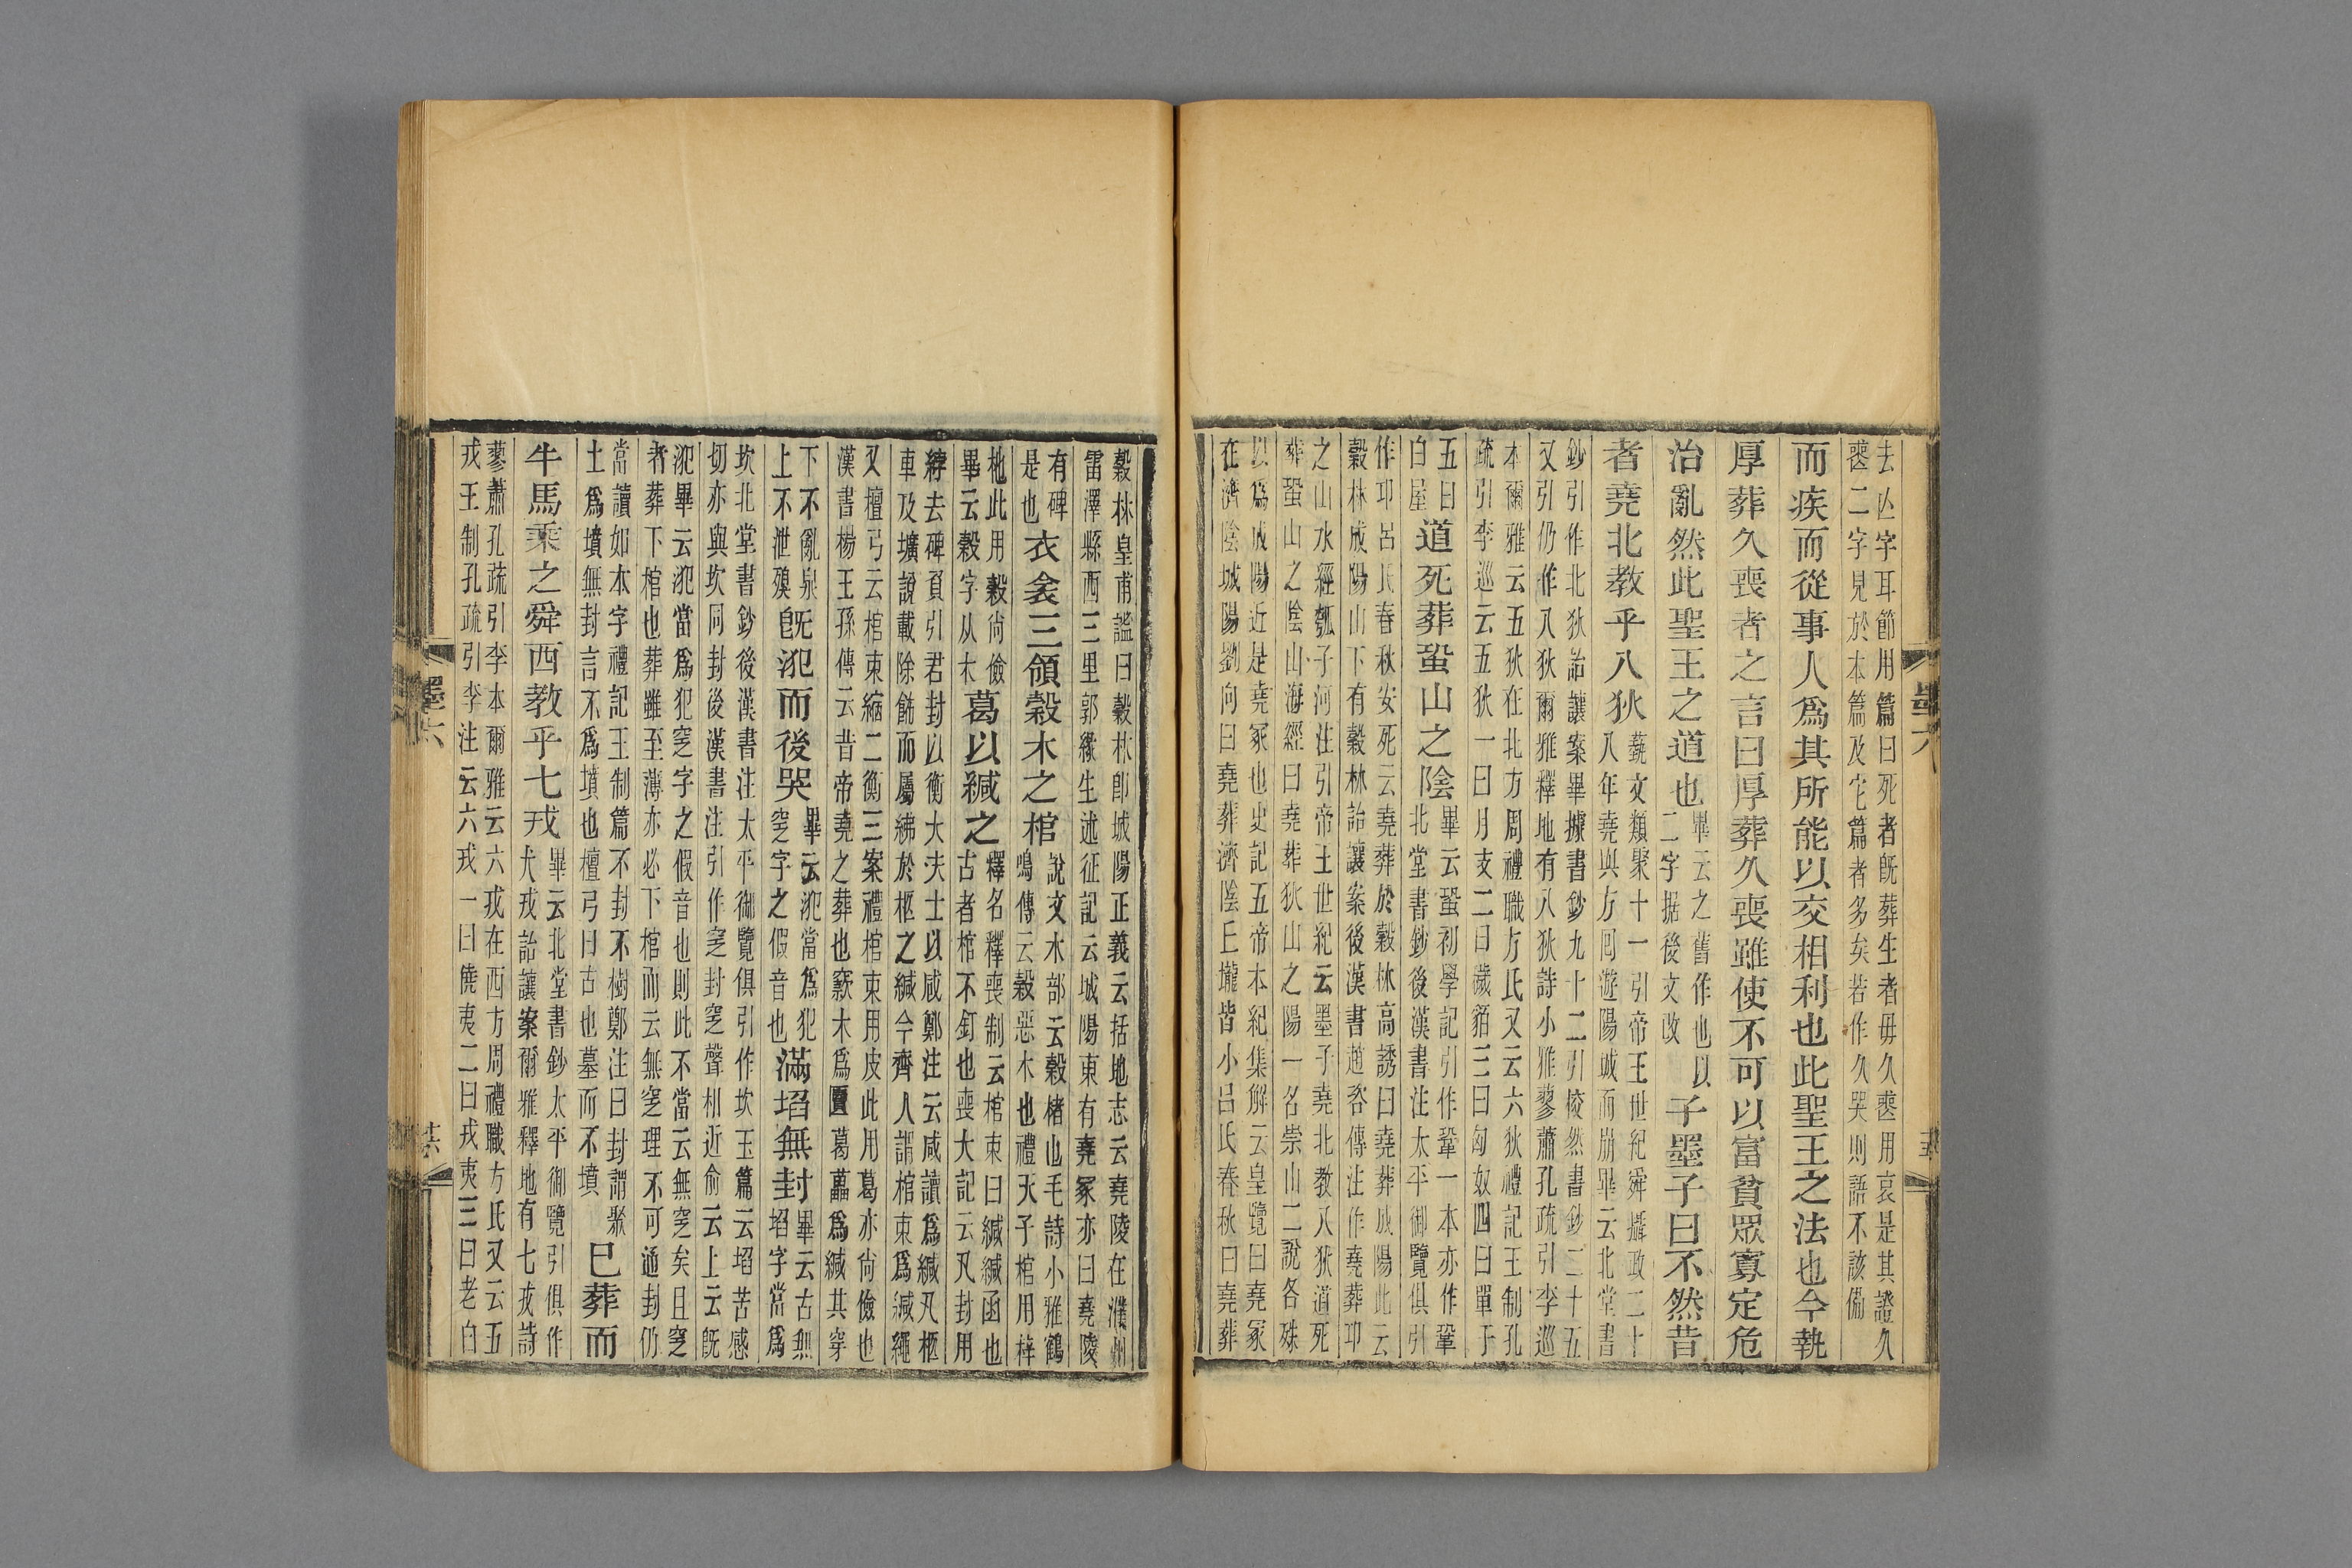 去亾字耳節用篇曰死者旣葬生者毋久喪用哀是其證久
喪二字見於本篇及它篇者多矣若作久哭則語不該備
而疾而從事人爲其所能以交相利也此聖王之法也今執
厚葬久喪者之言曰厚葬久喪雖使不可以富貧眾寡定危
治亂然此聖王之道也畢云之舊作也以
二字据後文改子墨子曰不然昔
者堯北教乎八狄蓺文類聚十一引帝王世紀舜攝政二十
八年堯與方回遊陽城而崩畢云北堂書
鈔引作北狄詒讓案畢據書鈔九十二引挍然書鈔二十五
又引仍作八狄爾雅釋地有八狄詩小雅蓼蕭孔疏引李巡
本爾雅云五狄在北方周禮職方氏又云六狄禮記王制孔
疏引李巡云五狄一曰月支二曰濊貊三曰匈奴四曰單于
五曰
白屋道死葬蛩山之陰畢云蛩初學記引作鞏一本亦作鞏
北堂書鈔後漢書注太平御覽俱引
作卭呂氏春秋安死云堯葬於穀林高誘曰堯葬成陽此云
穀林成陽山下有穀林詒讓案後漢書趙咨傳注作堯葬卭
之山水經瓠子河注引帝王世紀云墨子堯北教八狄道死
葬蛩山之陰山海經曰堯葬狄山之陽一名崇山二說各殊
以爲成陽近是堯冢也史記五帝本紀集解云皇覽曰堯冢
在濟陰城陽劉向曰堯葬濟陰丘壠皆小呂氏春秋曰堯葬
墨六
穀林皇甫謐曰穀林卽城陽正義云括地志云堯陵在濮州
雷澤縣西三里郭緣生述征記云城陽東有堯冢亦曰堯陵
有碑
是也衣衾三領榖木之棺說文木部云榖楮也毛詩小雅鶴
鳴傳云榖惡木也禮天子棺用梓
杝此用榖尚儉
畢云榖字从木葛以緘之釋名釋喪制云棺束曰緘緘函也
古者棺不釘也喪大記云凡封用
綍去碑負引君封以衡大夫士以咸鄭注云咸讀爲緘凡柩
車及壙說載除飾而屬紼於柩之緘今齊人謂棺束爲緘繩
又檀弓云棺束縮二衡三案禮棺束用皮此用葛亦尚儉也
漢書楊王孫傳云昔帝堯之葬也窾木爲匵葛藟爲緘其穿
下不亂泉
上不泄殠旣㲼而後哭畢云㲼當爲犯
窆字之假音也滿埳無封畢云古無
埳字當爲
坎北堂書鈔後漢書注太平御覽俱引作坎玉篇云埳苦感
切亦與坎同封後漢書注引作窆封窆聲相近俞云上云旣
㲼畢云㲼當爲犯窆字之假音也則此不當云無窆矣且窆
者葬下棺也葬雖至薄亦必下棺而云無窆理不可通封仍
當讀如本字禮記王制篇不封不樹鄭注曰封謂聚
土爲墳無封言不爲墳也檀弓曰古也墓而不墳已葬而
牛馬乘之舜西教乎七戎畢云北堂書鈔太平御覽引俱作
犬戎詒讓案爾雅釋地有七戎詩
蓼蕭孔疏引李本爾雅云六戎在西方周禮職方氏又云五
戎王制孔疏引李注云六戎一曰僥夷二曰戎夷三曰老白
墨六